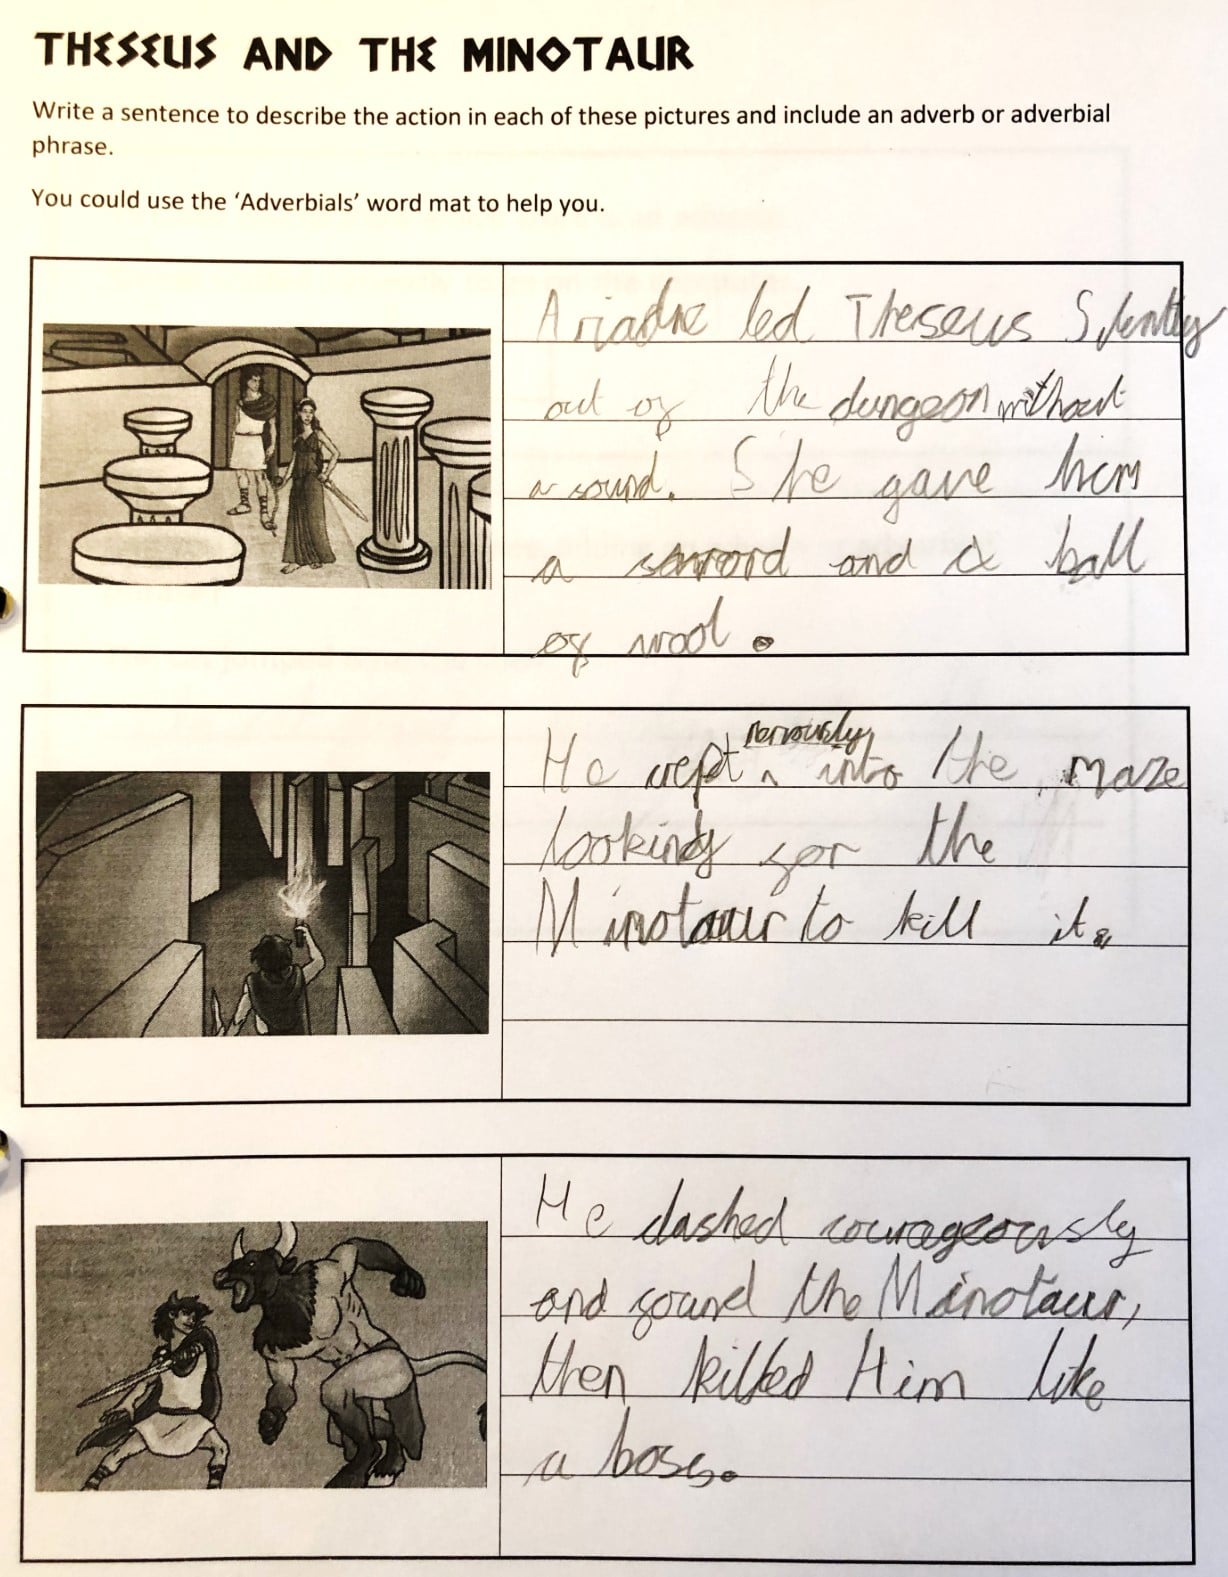 THESEUS AND THE MINOTAUR
Write a sentence to describe the action in each of these pictures and include an adverb or adverbial
phrase.
You could use the ‘Adverbials’ word mat to help you.
Ariadne led Theseus Silently
out of the dungeon without
a sound. She gave him
a sword and a ball
of wool.
nervously
He crept ^ into the maze
looking for the
Minotaur to kill it.
He dashed courageously
and found the Minotaur,
then killed Him like
a boss.